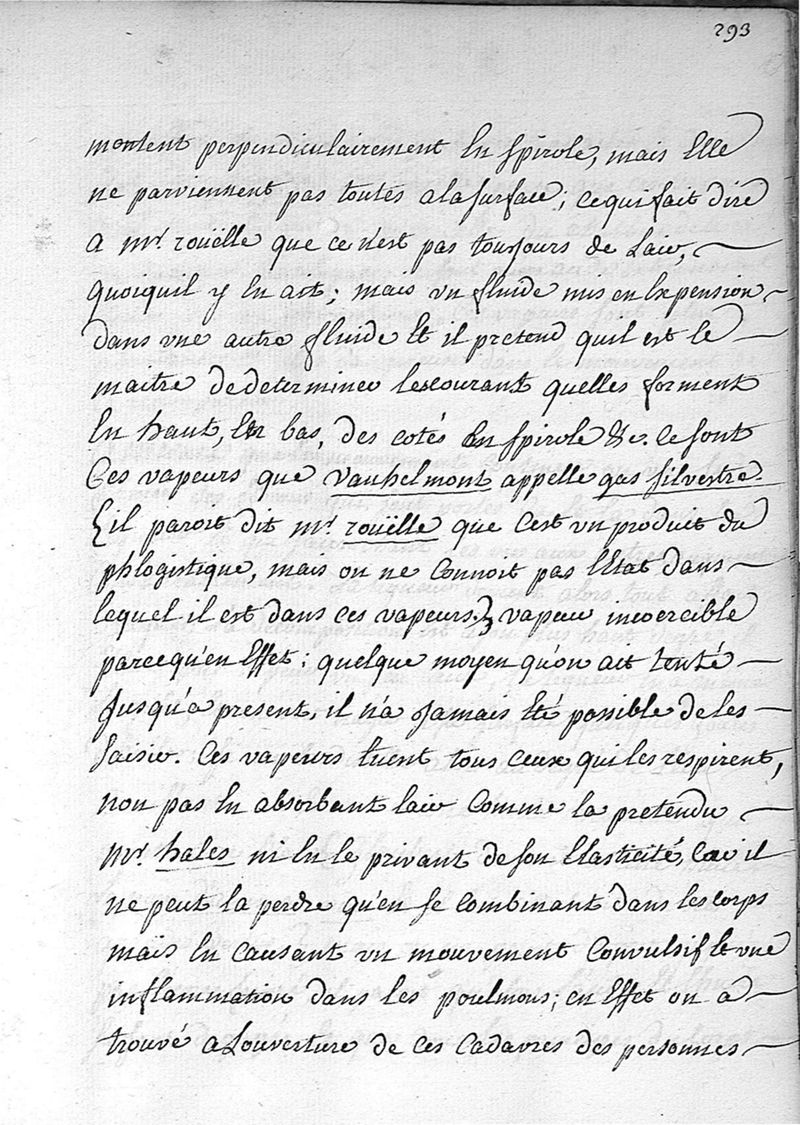 293
montent perpendiculairement En spirole, mais Elle
ne parviennent pas toutes a la surface; ce qui fait dire
a mr. rouëlle que ce n'est pas tousjours de Lair,
quoiquil y En ait; mais un fluide mis en Expension
dans une autre fluide Et il pretend quil est le
maitre de determiner les courant quelles forment
En haut, En bas, des cotés En spirole &c. ce sont
Ces vapeurs que Vanhelmont appelle gas silvestre.
{il paroit dit mr. rouëlle que C'est un produit du
phlogistique, mais on ne Connoit pas l'Etat dans
lequel il est dans ces vapeurs.} vapeur incoercible
parcequ'en Effet; quelque moyen qu'on ait tenté
Jusqu'a present, il n'a Jamais Eté possible de les
saisir. Ces vapeurs tuent tous ceux qui les respirent,
non pas En absorbant lair Comme la pretendu
mr. hales ni En le privant de son Elasticité, Car il
ne peut la perdre qu'en se Combinant dans les corps
mais En Causant un mouvement Convulsif Et une
inflammation dans les poulmons; en Effet on a
trouvé a Louverture de ces Cadavres des personnes